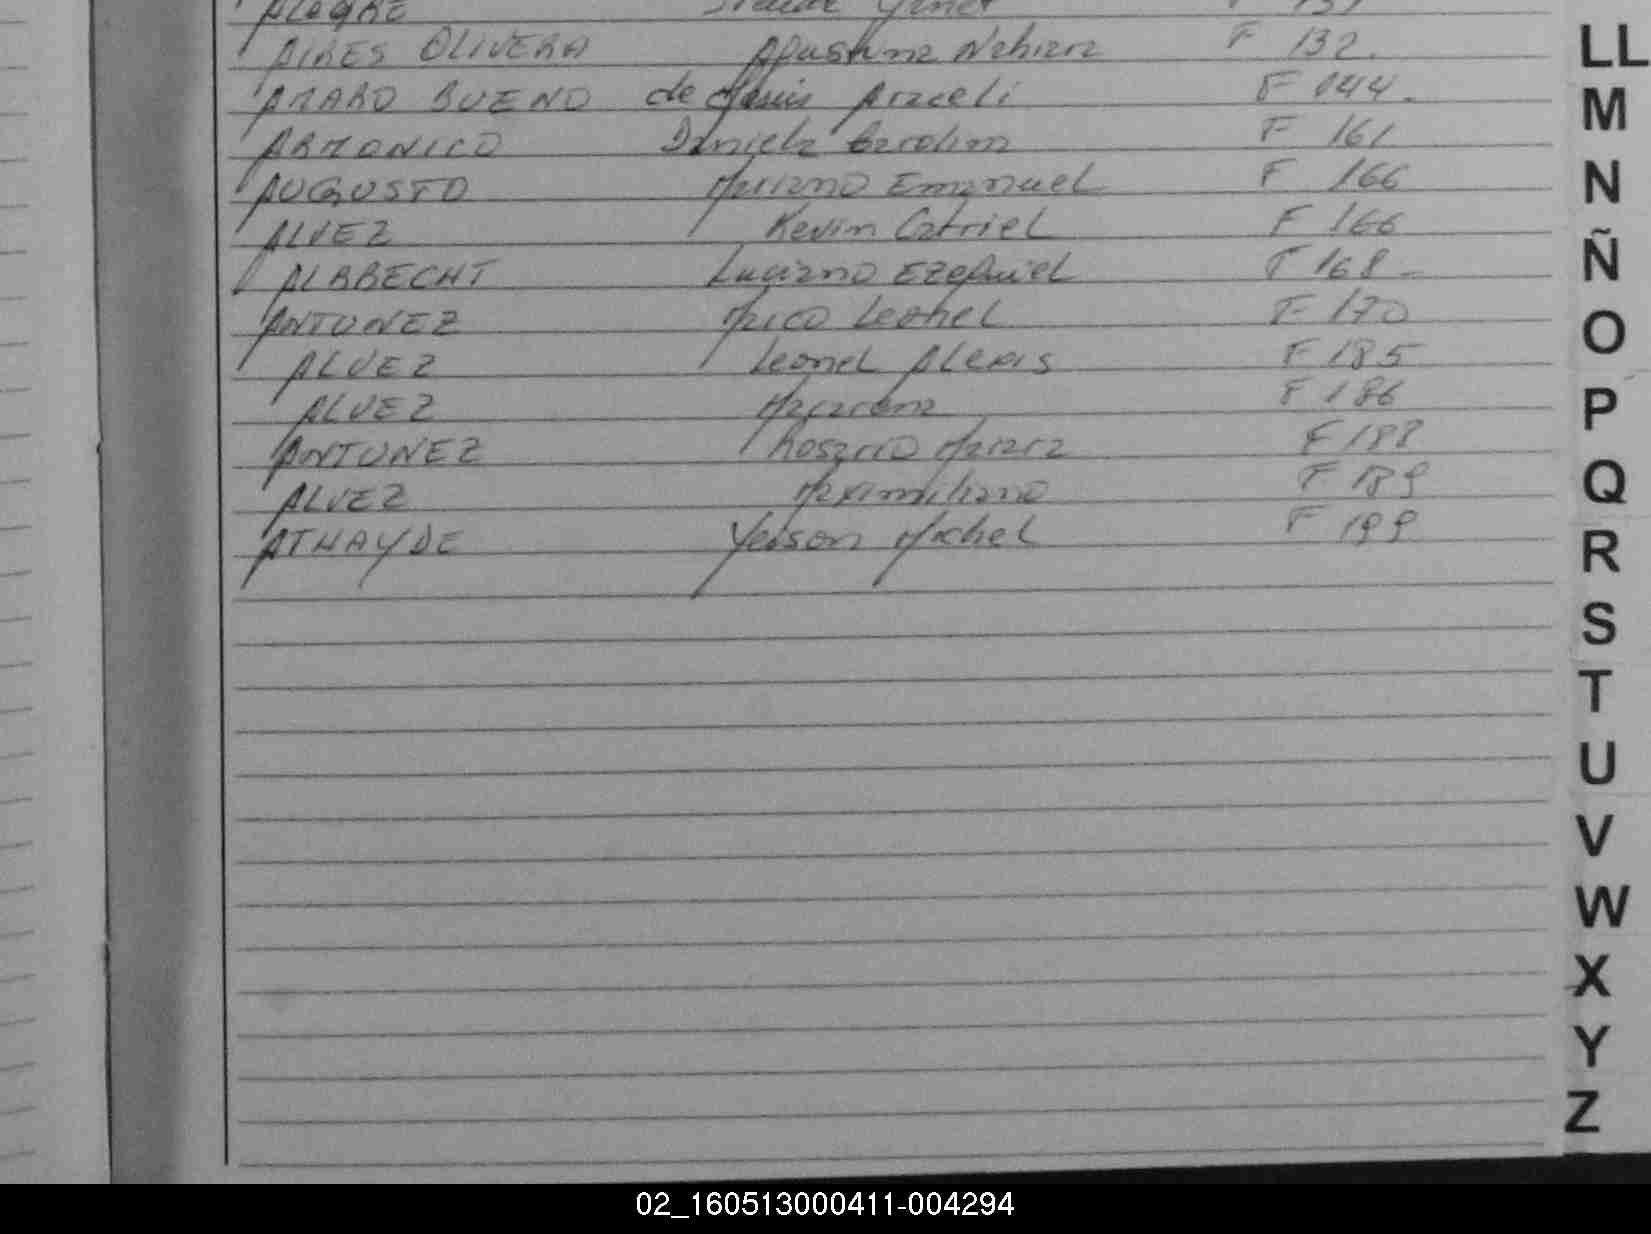 ALEGRE F 131
AIRES OLIVERA Agustina Nahiara F 132.
AMARO BUENO de Jesús Araceli F 144.
ARMONICO Daniela Carolina F 161
AUGUSTO Mariano Emanuel F 166
ALVEZ Kevin Catriel F 166
ALBRECHT Luciano Ezequiel F 168
ANTUNEZ Mico Leonel F 170
ALVEZ Leonel Alexis F 185
ALVEZ Macarena F 186
ANTUNEZ Rosario Maiara F 188
ALVEZ Maximiliano F 189
ATHAYDE Yeison Michel F 199
LL
M
N
Ñ
O
P
Q
R
S
T
U
V
W
X
Y
Z
02_160513000411-004294